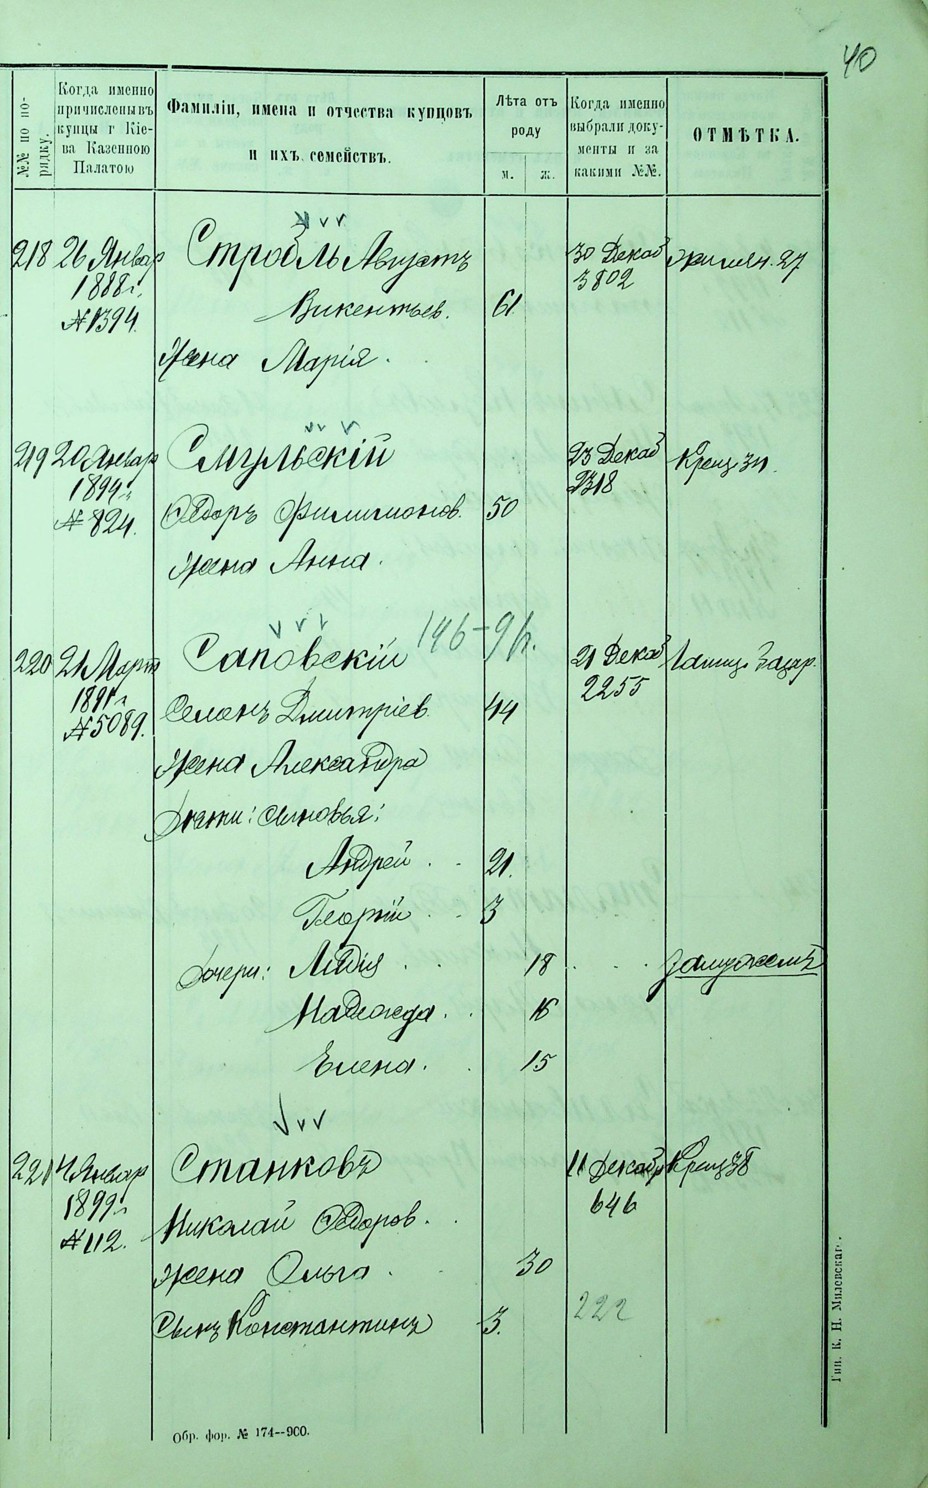 40
№№ по по-
рядку.
Когда именно
причислены въ
купцы г Кіе-
ва Казенною
Палатою
Фамиліи, имена и отчества купцовъ
и ихъ семействъ.
Лѣта отъ
роду
м. ж.
Когда именно
выбрали доку-
менты и за
какими №№.
ОТМѢТКА.
218 26 Январ Стробль Августъ 30 Декаб 27
1888г. 3802
№1394. Викентьев. 61
Жена Марія.
219 20 Январ Смульскій 23 Декаб Крещ 31.
1894г.
№ 824. Ѳедоръ Филимонов. 50
Жена Анна.
146-9
220 21 Март Саповскій 21 Декаб
1891г. 2255
№5089. Семенъ Дмитріев. 44
Жена Александра
Дѣти: сыновья:
Андрей 21.
Георгій 3
дочери: Лидія 18 замужемъ
Надежда 16
Елена. 15
221 4 Январ Станковъ 11 Декаб Крещ
1899г. 646
№112. Николай Ѳедоров.
Жена Ольга 30
Сынъ Константинъ 3.
222
Обр. фор. № 174--900.
Тип. К. Н. Милевскаг.